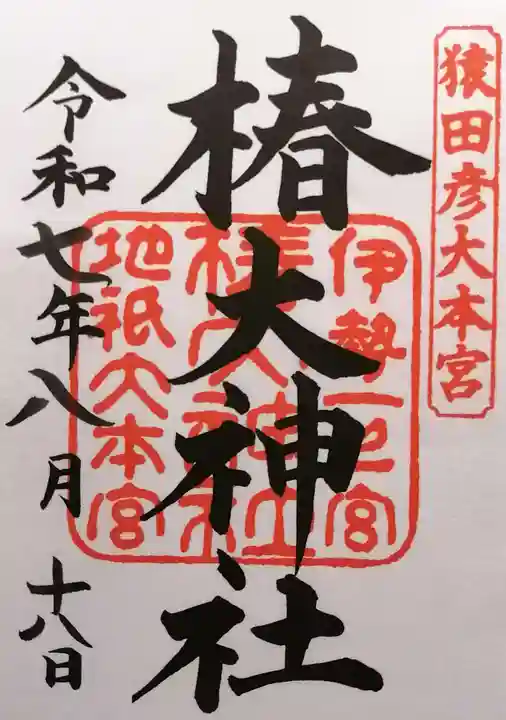 猿田彦大本宮
椿大神社
伊勢一宮
椿大神社
地祇大本宮
令和七年八月十八日